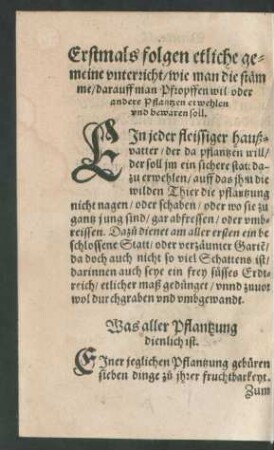 Erstmals folgen etliche ge-
meine vnterricht/ wie man die stäm
me/ darauff man Pfropffen wil oder
andere Pflantzen erwehlen
vnd bewaren soll.
EIn jeder fleissiger hauß-
vatter/ der da pflantzen will/
der soll jm ein sichere stat da-
zů erwehlen/ auff das jhm die
wilden Thier die pflantzung
nicht nagen/ oder schaben/ oder wo sie zů
gantz jung sind/ gar abfressen/ oder vmb-
reissen. Dazů dienet am aller ersten ein be
schlossene Statt/ oder verzäumter Gartē/
da doch auch nicht so viel Schattens ist/
darinnen auch seye ein frey süsses Erdt-
reich/ etlicher maß gedünget/ vnnd zuuor
wol durchgraben vnd vmbgewandt.
Was aller Pflantzung
dienlich ist.
EIner jeglichen Pflantzung gebüren
sieben dinge zů jhrer fruchtbarkeyt.
Zum